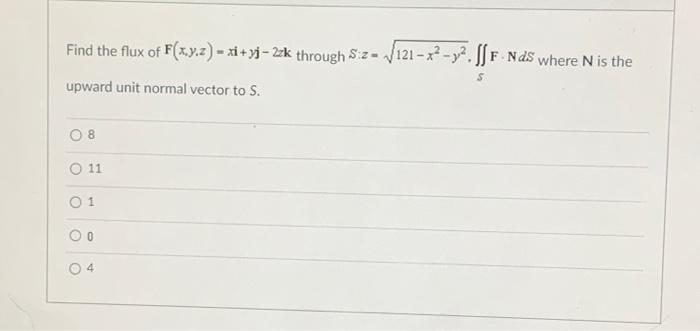 Find the flux of F(x,y,z) = xi + yj − 2zk through S:z = √(121 − x² − y²). ∬_S F · N dS where N is the
upward unit normal vector to S.
8
11
1
0
4